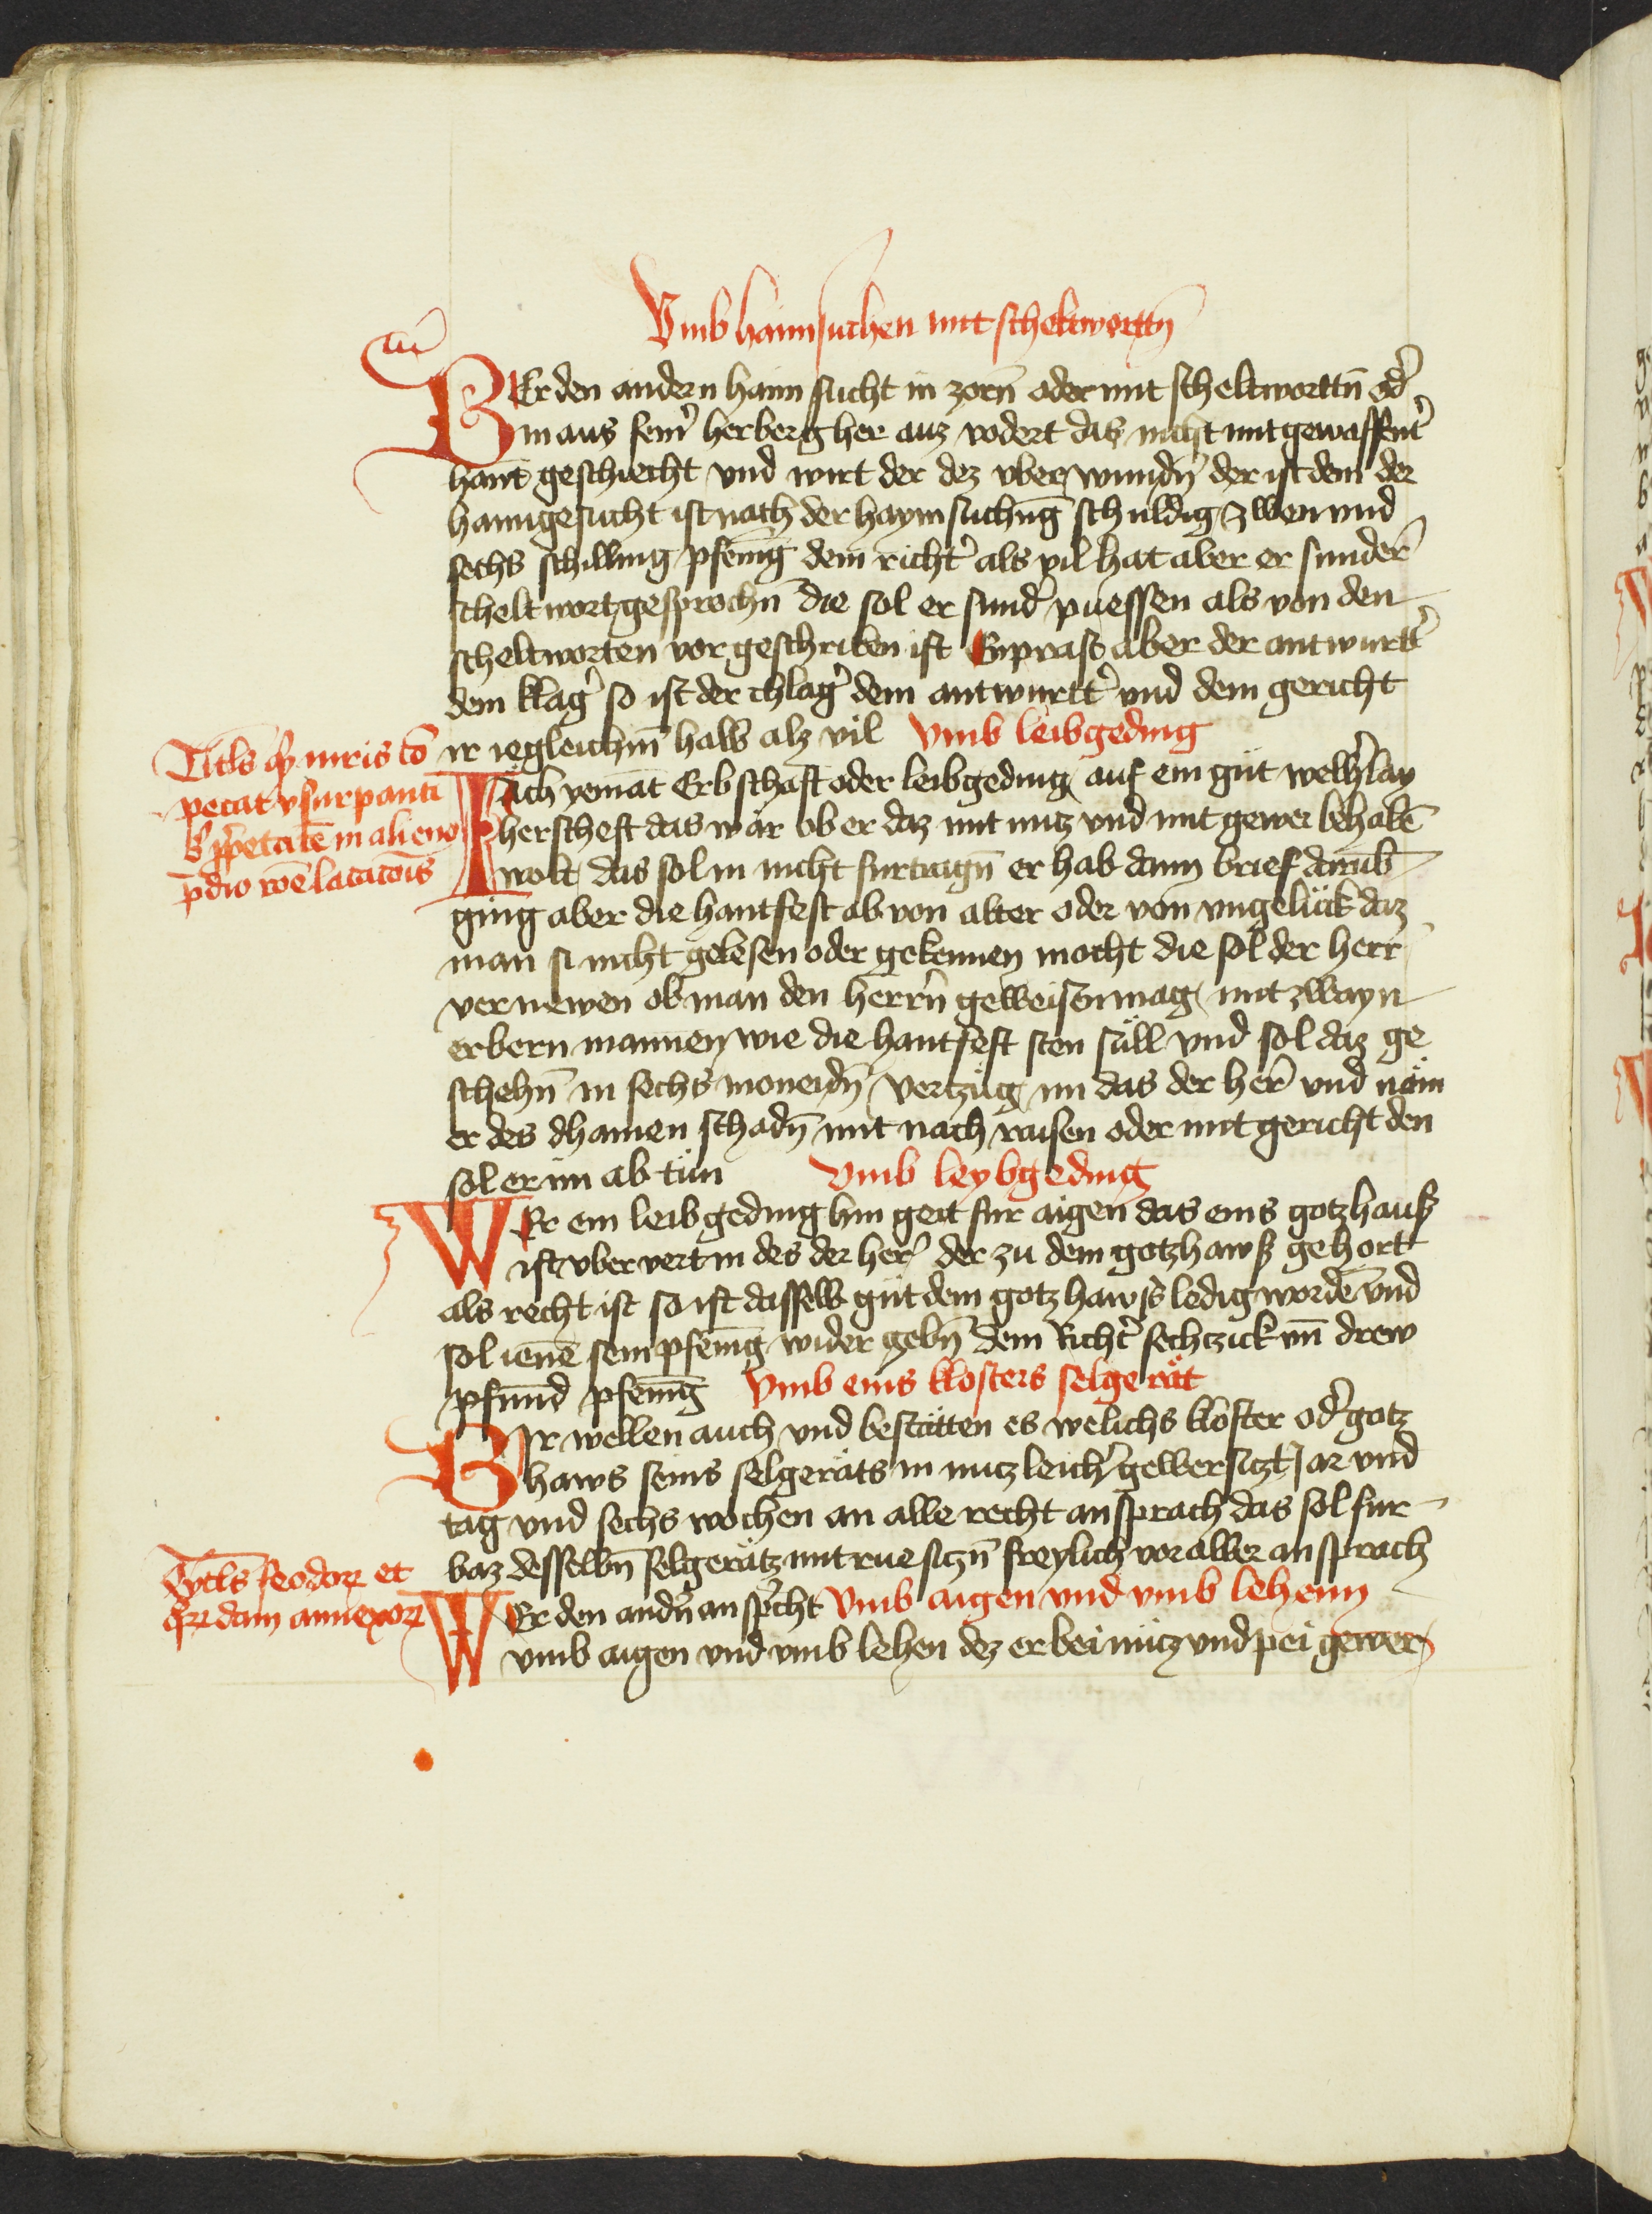 Vmb haimsuchen mit scheltwortn̄
WEr den andern haim sucht in zorn̄ oder mit scheltwortn̄ od̾
in aus sein̾ herberg her auz vodert daz nicht mit gewaffent̾
hant geschiecht vnd wirt der dez vber wundn̄ der ist dem der
haimgesucht ist nach der haymsuchūg schuldig zwen vnd
sechs schilling pfenīg dem richt̾ als vil hat aber er sunder̄
scheltwort gesprochn̄ die sol er sund̾ puessen als von den
scheltworten vor geschriben ist Enprast aber der antwurtt̾
dem klag̾ so ist der chlag̾ dem antwurtt̾ vnd dem gericht
ir iegleichm̄ halb alz vil Vmb leibgeding
Titls qp̄ iuris cō
petat vsurpanti
ꝓpetatē in alieno
p̄dio rōe locacōis
Iäch yemāt Erbschaft oder leibgeding auf ein gut welh̾lay
herscheft das wär ob er daz mit nutz vnd mit gewer behabē
wolt das sol in nicht furtragn̄ er hab dann brief darūb
ging aber die hantfest ab von alter oder von vngelück daz
man si nicht gelesen oder gekennen mocht die sol der herr
vernewen ob man den herrn̄ geweisen mag mit zwayn
erbern mannen wie die hantfest sten süll vnd sol daz ge
schehn̄ in sechs moneidn̄ vertzüg im das der her̄ vnd näm
er des dhainen schadn̄ mit nach raisen oder mit gericht den
sol er im ab tün Vmb leybgeding
WEr ein leibgeding hin geit fur aigen das eins gotzhauß
ist vber vert in des der her̄ der zu dem gotzhawß gehort
als recht ist so ist dasselb güt dem gotzhawß ledig wordē vnd
sol ienē sein pfenīg wider gebn̄ dem Richt̾ sechtzick vn̄ drew
pfund pfenīg Vmb eins klosters selgerät
WIr wellen auch vnd bestätten es welichs kloster od̾ gotz
haws seins selgeräts in nutzleich̾ gewer sitzt Jar vnd
tag vnd sechs wochen an alle recht ansprach das sol fur
baz desselbn̄ selgerätz mit rue sitzn̄ freylich vor aller ansprach
Tytls feodoꝝ et
qꝝdam annexoꝝ
WEr den andn̾ ansp̾cht Vmb aigen vnd vmb lehenn
vmb aigen vnd vmb lehen dez er bei nutz vnd pei gewer